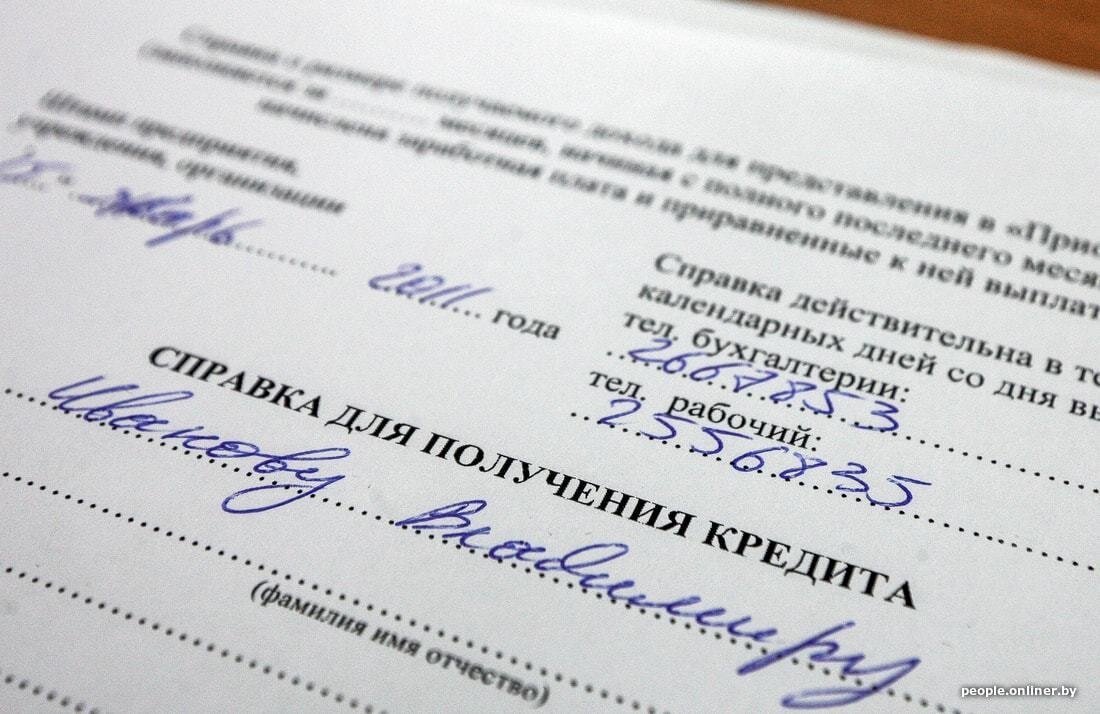 Справка о размере получаемого дохода для представления в «Прио
(заполняется за ............ месяцев, начиная с полного последнего меся
начислена заработная плата и приравненные к ней выплат
Штамп предприятия,
учреждения, организации
январь 2011 года
Справка действительна в те
календарных дней со дня вы
тел. бухгалтерии:
2667853
тел. рабочий:
2556835
СПРАВКА ДЛЯ ПОЛУЧЕНИЯ КРЕДИТА
Иванову Владимиру
(фамилия имя отчество)
people.onliner.by